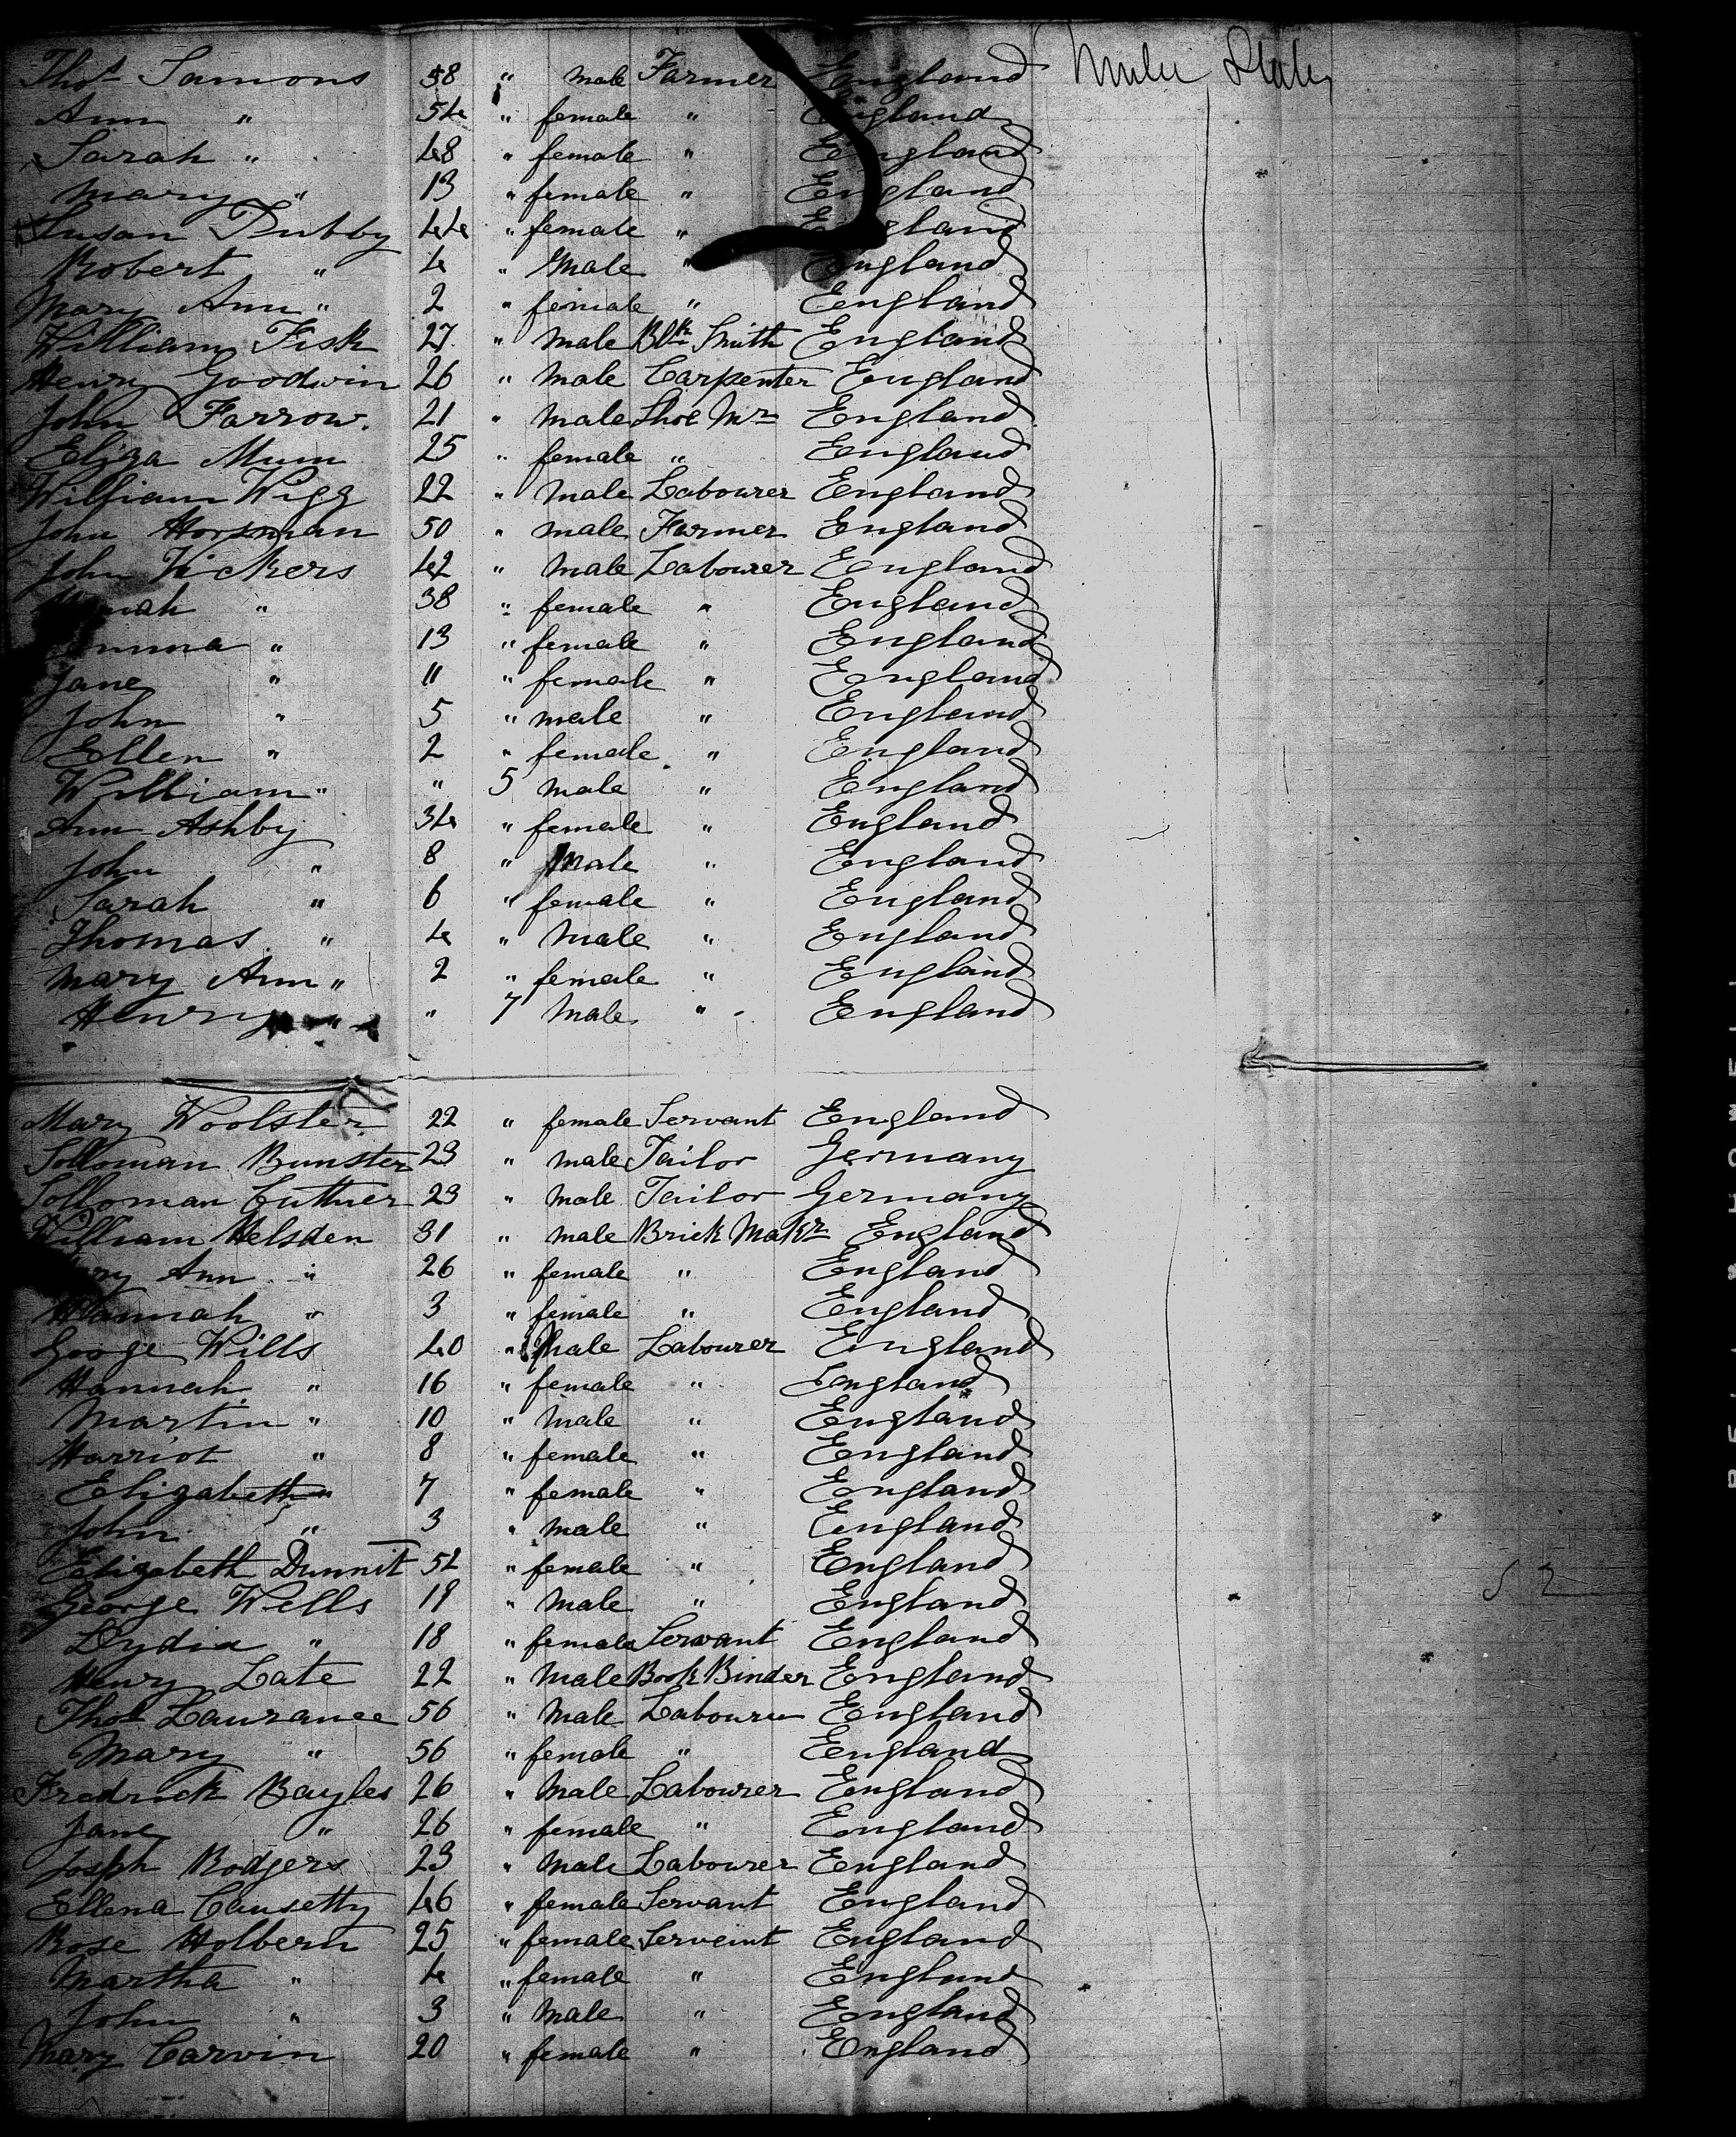 Thos Samons 58 " male Farmer England United States
Ann " 54 " female " England
Sarah " 48 " female " England
Mary " 13 " female " England
Susan Tubby 44 " female " England
Robert " 4 " Male " England
Mary Ann " 2 " female " England
William Fisk 27 " Male Blk Smith England
Henry Goodwin 26 " Male Carpenter England
John Farrow 21 " Male Shoe Mr England
Eliza Mum 25 " female " England
William Wigg 22 " Male Labourer England
John Horsman 50 " male Farmer England
John Vickers 42 " Male Labourer England
38 " female " England
Emma " 13 " female " England
Jane " 11 " female " England
John " 5 " male " England
Ellen " 2 " female " England
William " " 5 male " England
Ann Ashby 34 " female " England
John " 8 " Male " England
Sarah " 6 " female " England
Thomas " 4 " Male " England
Mary Ann " 2 " female " England
Henry " " 7 Male " England
Mary Woolster 22 " female Servant England
Solloman Bunster 23 " male Tailor Germany
Solloman Cuttner 23 " Male Tailor Germany
William Helsden 31 " male Brick Makr England
Mary Ann " 26 " female " England
Hannah " 3 " female " England
George Wills 40 " Male Labourer England
Hannah " 16 " female " England
Martin " 10 " Male " England
Harriot " 8 " female " England
Elizabeth " 7 " female " England
John " 3 " male " England
Elizabeth Dunnit 52 " female " England
George Wells 19 " Male " England
Lydia " 18 " female Servant England
Henry Late 22 " Male Book Binder England
Thos Laurance 56 " Male Labourer England
Mary " 56 " female " England
Fredrick Bayles 26 " Male Labourer England
Jane " 26 " female " England
Joseph Rodgers 23 " Male Labourer England
Ellena Causetty 46 " female Servant England
Rose Holbern 25 " female Serveint England
Martha " 4 " female " England
John " 3 " Male " England
Mary Carvin 20 " female " England